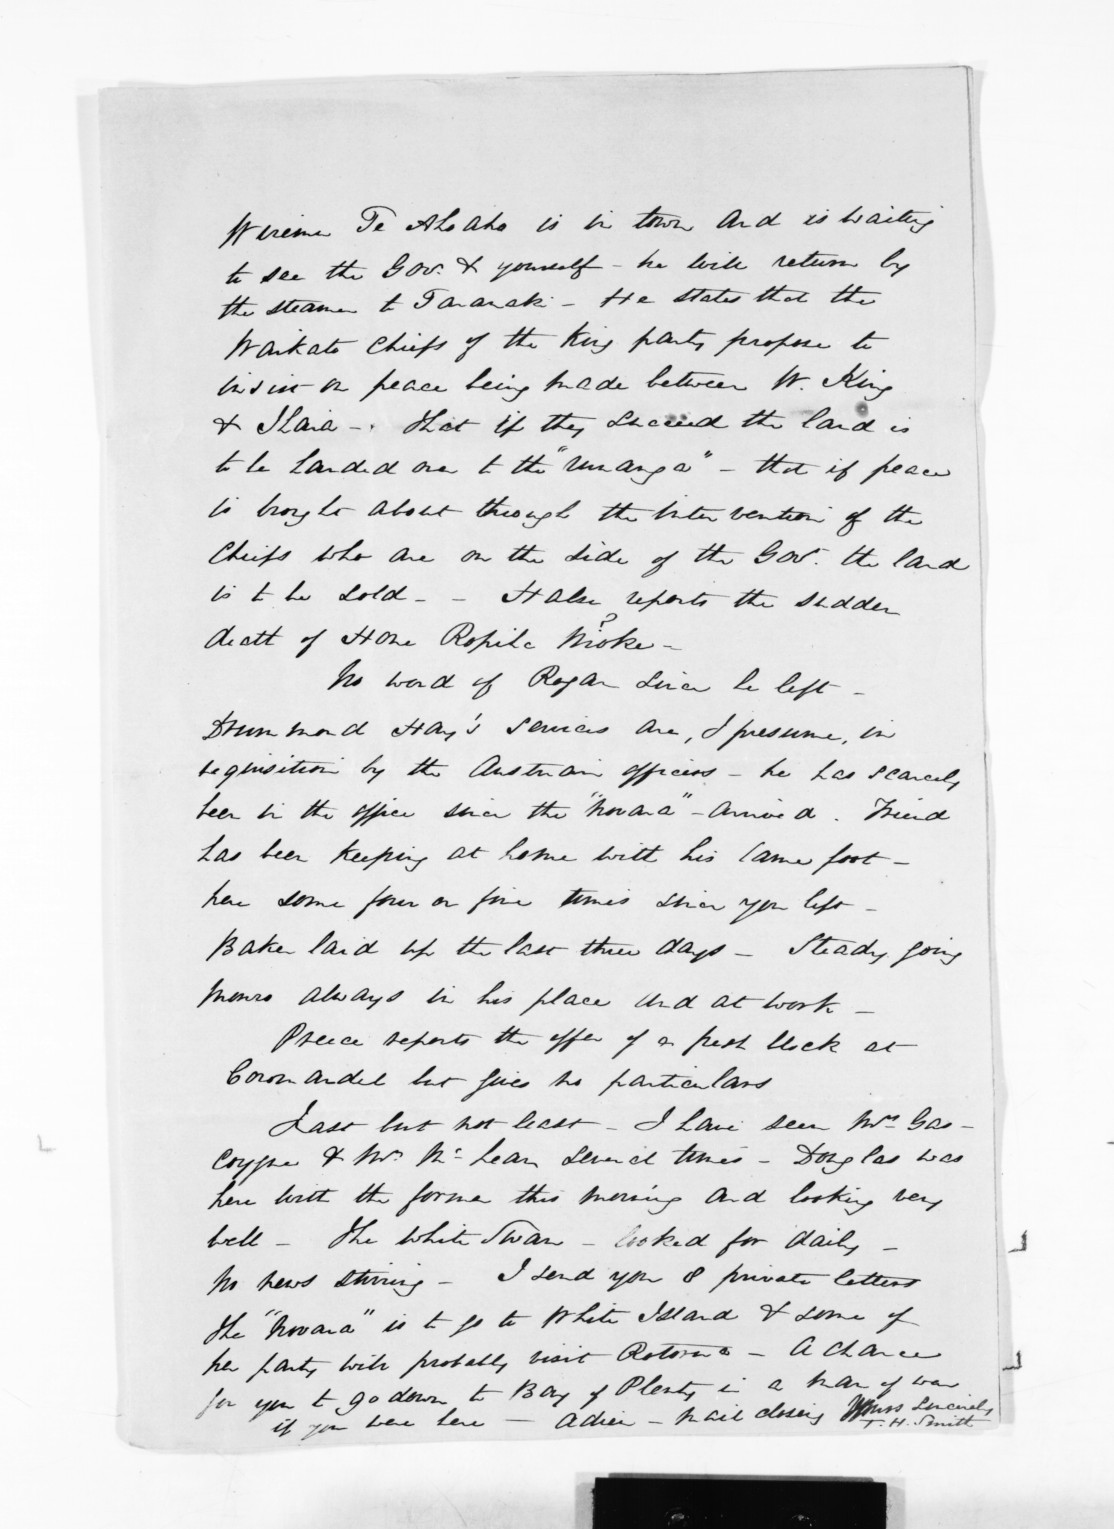 Wiremu Te Ahoaho is in town and is waiting
to see the Gov. & yourself - he will return by
the steamer to Taranaki - He states that the
Waikato Chiefs of the King party propose to
insist on peace being made between W. King
& Ihaia -. that if they succeed the land is
to be handed over to the "runanga" - that if peace
is brought about through the intervention of the
Chiefs who are on the side of the Gov. the land
is to be sold - - Halse reports the sudden
death of Hone Ropiha ?
No word of Rogan since he left -
Drummond Hay's services are, I presume, in
requisition by the Austrian officers - he has scarcely
been in the office since the "Novara" - arrived. Friend
has been keeping at home with his lame foot -
here some four or five times since you left -
Baker laid up the last three days - Steady going
Monro always in his place and at work -
Preece reports the offer of a fresh block at
Coromandel but gives no particulars
Last but not least - I have seen Mrs Gas-
coyne & Mrs McLean several times - Douglas was
here with the former this morning and looking very
well - The White Swan - looked for daily -
No news stirring - I send you 8 private letters
The "Novara" is to go to White Island & some of
her party will probably visit Rotorua - A chance
for you to go down to Bay of Plenty in a man of war
if you were here - Adieu - mail closing Yours Sincerely
T. H. Smith